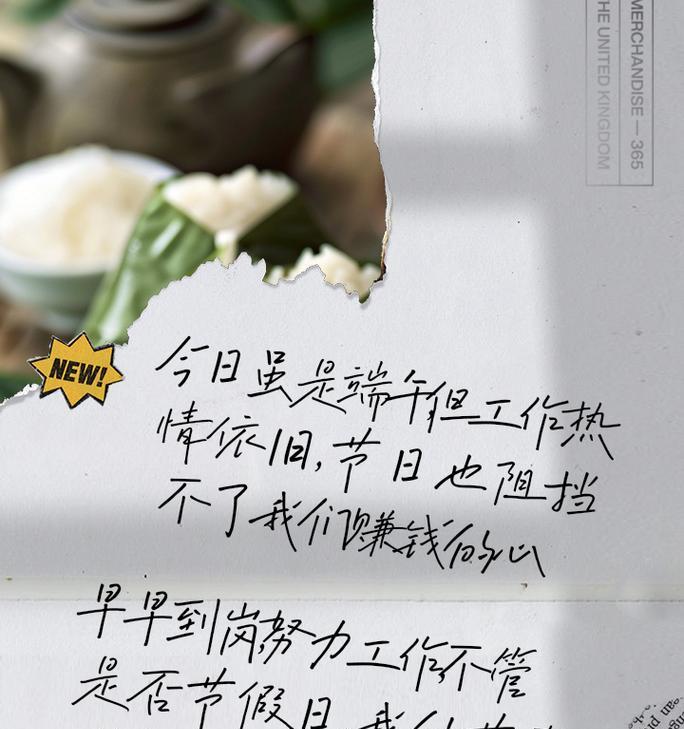 MERCHANDISE — 365
THE UNITED KINGDOM
NEW!
今日虽是端午但工作热
情依旧,节日也阻挡
不了我们赚钱的心
早早到岗努力工作不管
是否节假日